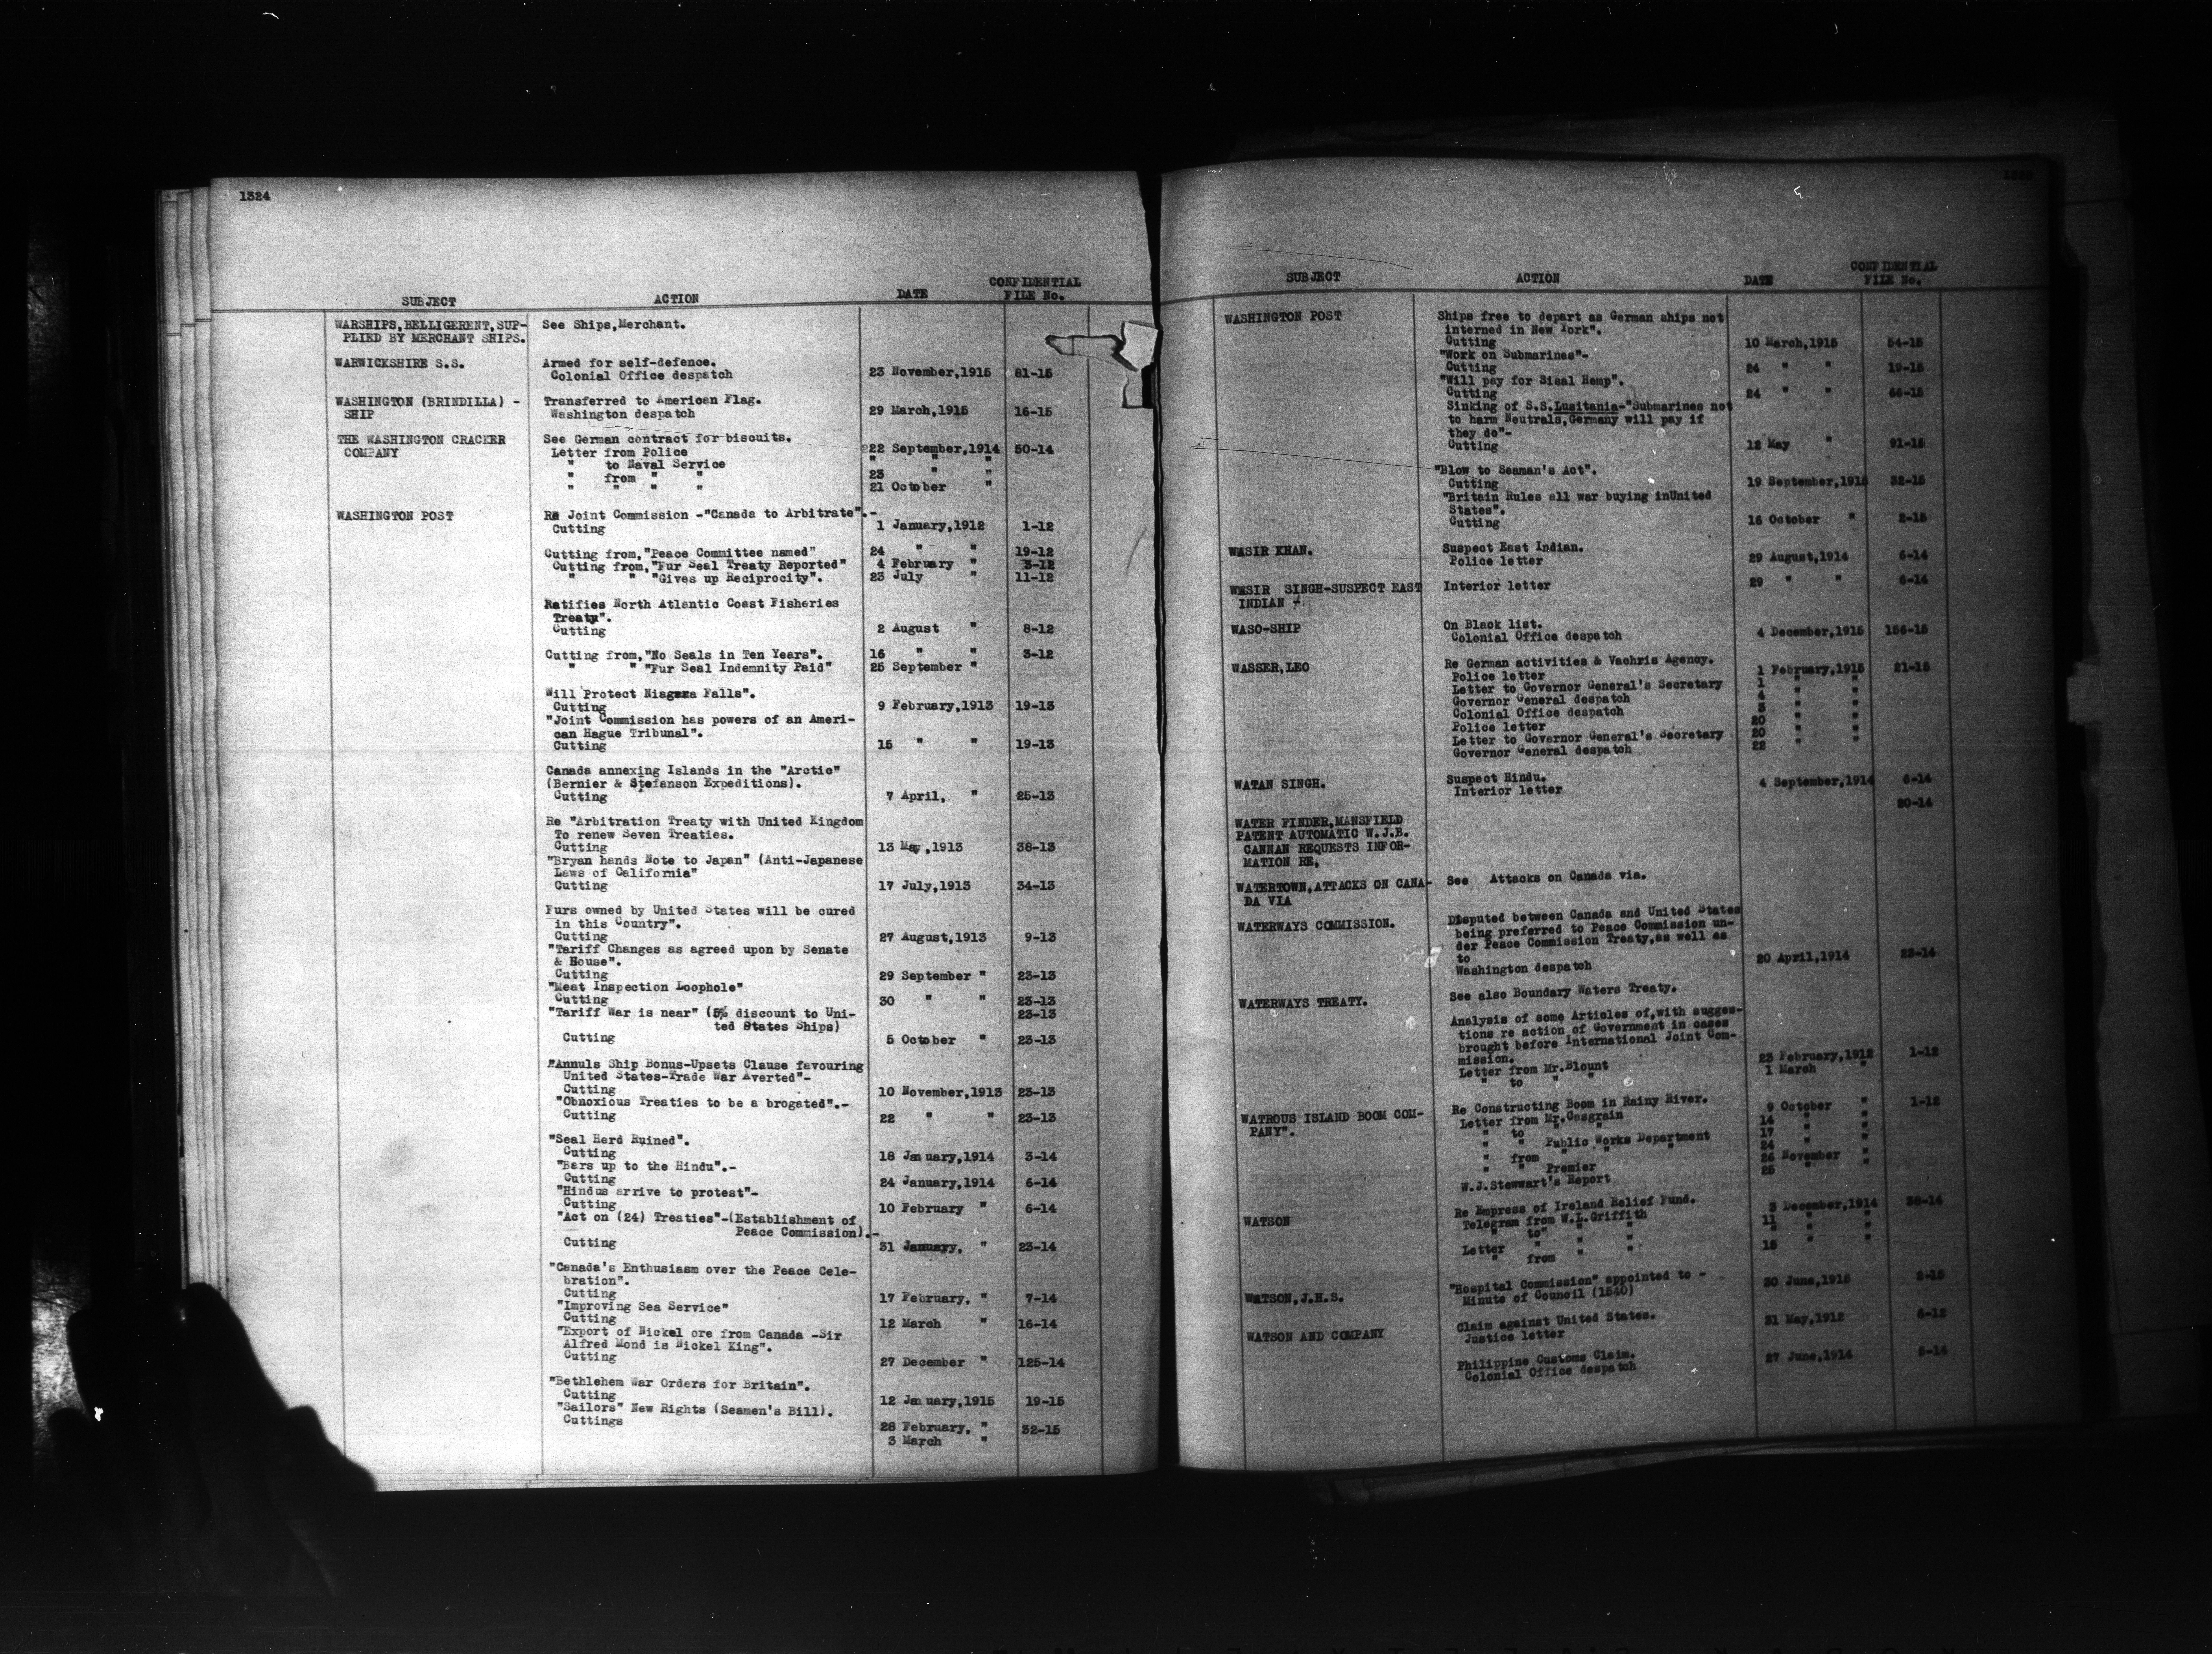 1324
SUBJECT ACTION DATE CONFIDENTIAL FILE No.
WARSHIPS,BELLIGERENT,SUP- See Ships,Merchant.
PLIED BY MERCHANT SHIPS.
WARWICKSHIRE S.S. Armed for self-defence.
Colonial Office despatch 23 November,1915 81-15
WASHINGTON (BRINDILLA) - Transferred to American Flag.
SHIP Washington despatch 29 March,1915 16-15
THE WASHINGTON CRACKER See German contract for biscuits.
COMPANY Letter from Police 22 September,1914 50-14
" to Naval Service " " "
" from " " 23 " "
" " " " 21 October "
WASHINGTON POST Re Joint Commission -"Canada to Arbitrate".-
Cutting 1 January,1912 1-12
Cutting from,"Peace Committee named" 24 " " 19-12
Cutting from,"Fur Seal Treaty Reported" 4 February " 3-12
" " "Gives up Reciprocity". 23 July " 11-12
Ratifies North Atlantic Coast Fisheries
Treaty".
Cutting 2 August " 8-12
Cutting from,"No Seals in Ten Years". 16 " " 3-12
" " "Fur Seal Indemnity Paid" 25 September "
Will Protect Niagara Falls".
Cutting 9 February,1913 19-13
"Joint Commission has powers of an Ameri-
can Hague Tribunal".
Cutting 15 " " 19-13
Canada annexing Islands in the "Arctic"
(Bernier & Stefanson Expeditions).
Cutting 7 April, " 25-13
Re "Arbitration Treaty with United Kingdom
To renew Seven Treaties.
Cutting 13 May,1913 38-13
"Bryan hands Note to Japan" (Anti-Japanese
Laws of California"
Cutting 17 July,1913 34-13
Furs owned by United States will be cured
in this Country".
Cutting 27 August,1913 9-13
"Tariff Changes as agreed upon by Senate
& House".
Cutting 29 September " 23-13
"Meat Inspection Loophole"
Cutting 30 " " 23-13
"Tariff War is near" (5% discount to Uni- 23-13
ted States Ships)
Cutting 5 October " 23-13
"Annuls Ship Bonus-Upsets Clause favouring
United States-Trade War Averted"-
Cutting 10 November,1913 23-13
"Obnoxious Treaties to be a brogated".-
Cutting 22 " " 23-13
"Seal Herd Ruined".
Cutting 18 January,1914 3-14
"Bars up to the Hindu".-
Cutting 24 January,1914 6-14
"Hindus arrive to protest"-
Cutting 10 February " 6-14
"Act on (24) Treaties"-(Establishment of
Peace Commission).-
Cutting 31 January, " 23-14
"Canada's Enthusiasm over the Peace Cele-
bration".
Cutting 17 February, " 7-14
"Improving Sea Service"
Cutting 12 March " 16-14
"Export of Nickel ore from Canada -Sir
Alfred Mond is Nickel King".
Cutting 27 December " 125-14
"Bethlehem War Orders for Britain".
Cutting 12 January,1915 19-15
"Sailors" New Rights (Seamen's Bill).
Cuttings 28 February, " 32-15
3 March "
SUBJECT ACTION DATE CONFIDENTIAL FILE No.
WASHINGTON POST Ships free to depart as German ships not
interned in New York".
Cutting 10 March,1915 54-15
"Work on Submarines"-
Cutting 24 " " 19-15
"Will pay for Sisal Hemp".
Cutting 24 " " 66-15
Sinking of S.S.Lusitania-"Submarines not
to harm Neutrals,Germany will pay if
they do"-
Cutting 12 May " 91-15
"Blow to Seaman's Act".
Cutting 19 September,1915 32-15
"Britain Rules all war buying inUnited
States".
Cutting 16 October " 2-15
WASIR KHAN. Suspect East Indian.
Police letter 29 August,1914 6-14
WESIR SINGH-SUSPECT EAST Interior letter 29 " " 6-14
INDIAN
WASO-SHIP On Black list.
Colonial Office despatch 4 December,1915 156-15
WASSER,LEO Re German activities & Vachris Agency.
Police letter 1 February,1915 21-15
Letter to Governor General's Secretary 1 " "
Governor General despatch 4 " "
Colonial Office despatch 3 " "
Police letter 20 " "
Letter to Governor General's Secretary 20 " "
Governor General despatch 22 " "
WATAN SINGH. Suspect Hindu.
Interior letter 4 September,1914 6-14
WATER FINDER,MANSFIELD 20-14
PATENT AUTOMATIC W.J.B.
CANNAN REQUESTS INFOR-
MATION RE,
WATERTOWN,ATTACKS ON CANA- See Attacks on Canada via.
DA VIA
WATERWAYS COMMISSION. Disputed between Canada and United States
being preferred to Peace Commission un-
der Peace Commission Treaty,as well as
to
Washington despatch 20 April,1914 23-14
WATERWAYS TREATY. See also Boundary Waters Treaty.
Analysis of some Articles of,with sugges-
tions re action of Government in cases
brought before International Joint Com-
mission.
Letter from Mr.Blount 23 February,1912 1-12
" to " " 1 March "
WATROUS ISLAND BOOM COM- Re Constructing Boom in Rainy River.
PANY". Letter from Mr.Casgrain 9 October " 1-12
" to " " 14 " "
" " Public Works Department 17 " "
" from " " " 24 " "
" " Premier 26 November "
W.J.Stewwart's Report 25 " "
WATSON Re Empress of Ireland Relief Fund.
Telegram from W.L.Griffith 3 December,1914 38-14
" to " " 11 " "
Letter " " " " " "
" from " " 15 " "
WATSON,J.H.S. "Hospital Commission" appointed to -
Minute of Council (1540) 30 June,1915 2-15
WATSON AND COMPANY Claim against United States.
Justice letter 31 May,1912 6-12
Philippine Customs Claim.
Colonial Office despatch 27 June,1914 5-14